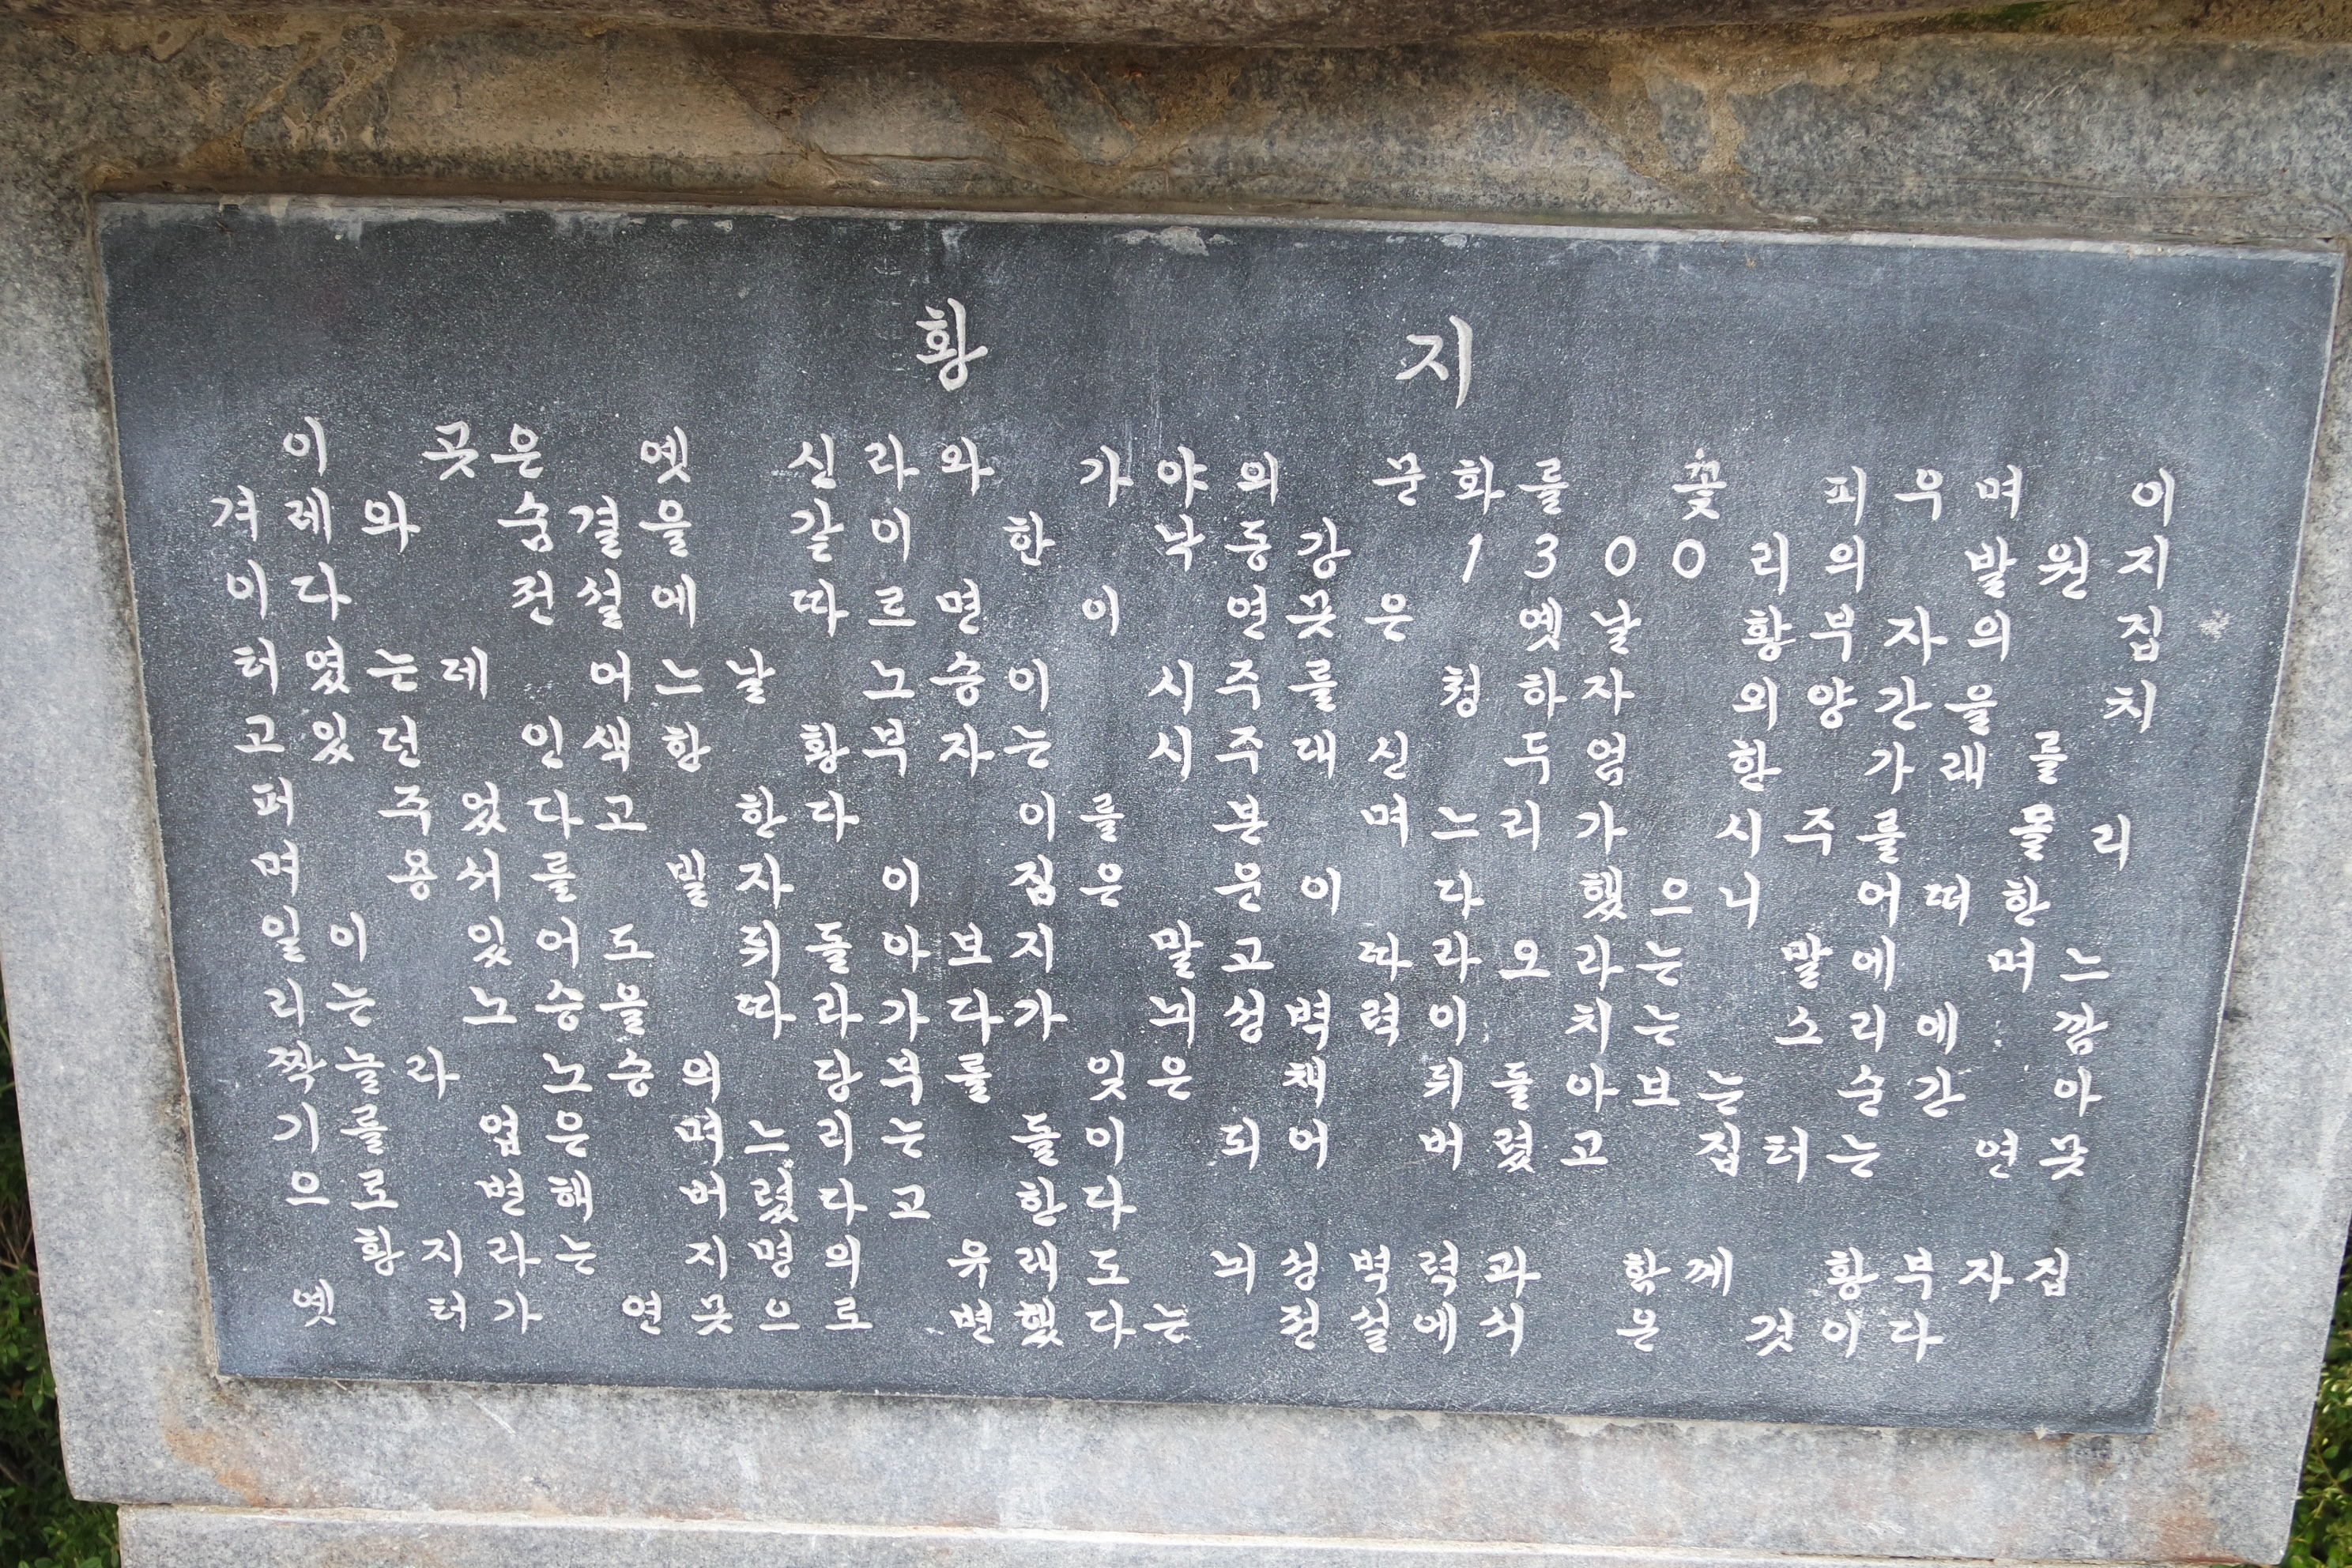 황 지
이 곳은 옛 신라와 가야의 문화를 꽃 피우며 이
겨레와 숨결을 같이 한 낙동강 1300리의 발원지
이다 전설에 따르면 이 연못은 옛날 황부자의 집
터였는데 어느날 노승이 시주를 청하자 외양간을 치
고있던 인색한 황부자는 시주대신 두엄 한 가래를
퍼 주었다고 한다 이를 본 며느리가 시주를 올리
며 용서를 빌자 이 집은 운이 다 했으니 어떠한
일이 있어도 뒤돌아보지 말고 따라오라는 말에 며느
리는 노승을 따라가다가 뇌성벽력이 치는 소리에 깜
짝놀라 노승의 당부를 잊은 채 뒤돌아보는 순간 아
기를 업은 며느리는 돌이 되어 버렸고 집터는 연못
으로 변해 버렸다고 한다
황지라는 지명의 유래도 뇌성벽력과 함께 황부자집
옛 터가 연못으로 변했다는 전설에서 온 것이다